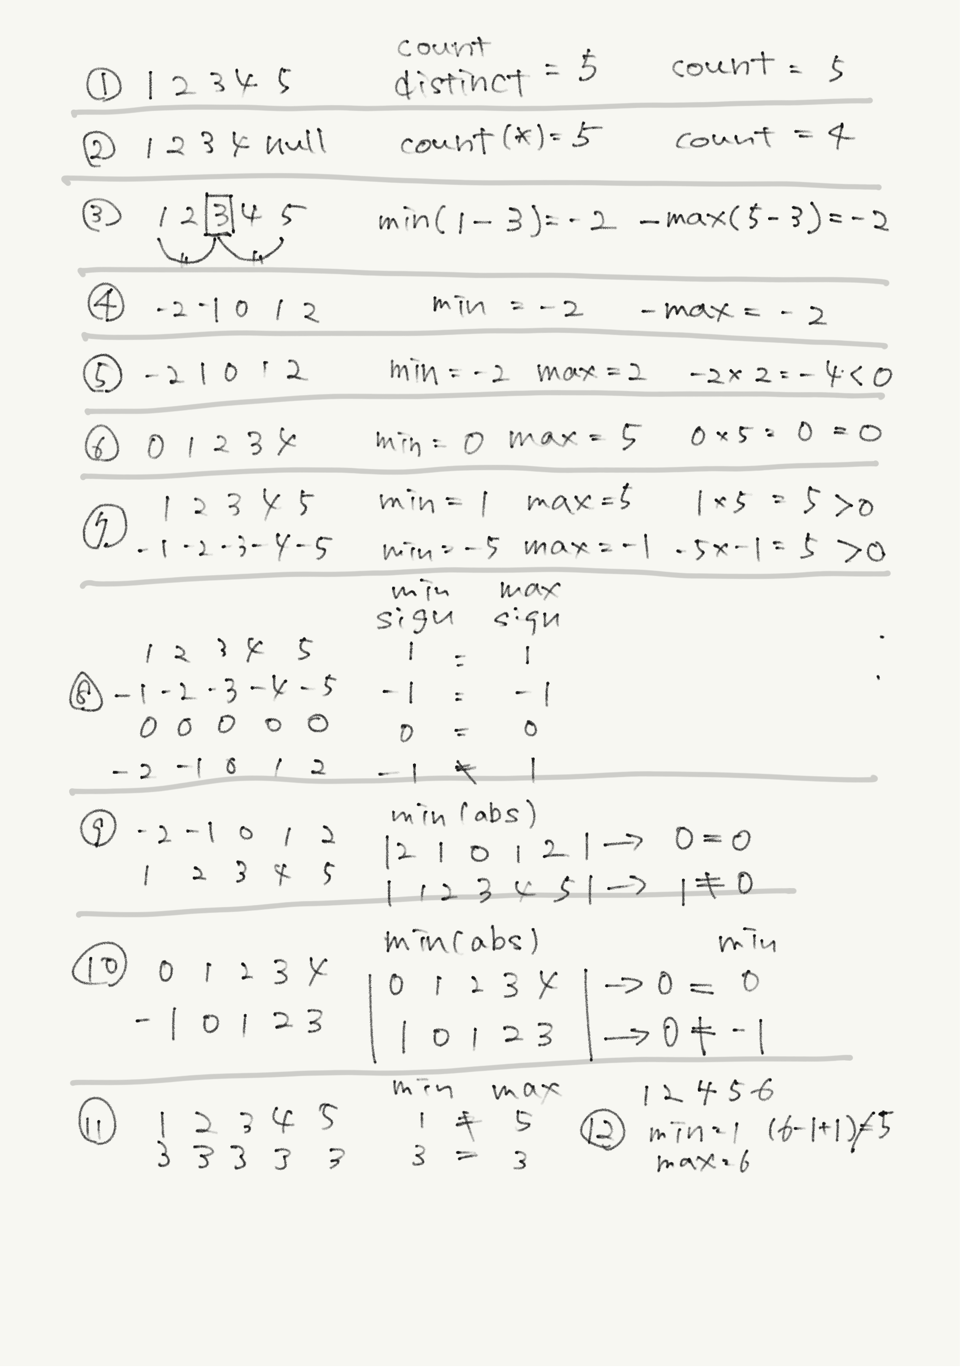 count
① 1 2 3 4 5 distinct = 5 count = 5
② 1 2 3 4 null count(*)=5 count = 4
③ 1 2 3 4 5 min(1-3)=-2 -max(5-3)=-2
④ -2 -1 0 1 2 min = -2 -max = -2
⑤ -2 1 0 1 2 min = -2 max = 2 -2×2=-4<0
⑥ 0 1 2 3 4 min = 0 max = 5 0×5=0=0
1 2 3 4 5 min = 1 max=5 1×5=5>0
⑦ -1 -2 -3 -4 -5 min = -5 max = -1 -5×-1=5>0
min max
sign sign
1 2 3 4 5 1 = 1
⑧ -1 -2 -3 -4 -5 -1 = -1
0 0 0 0 0 0 = 0
-2 -1 0 1 2 -1 ≠ 1
min(abs)
⑨ -2 -1 0 1 2 |2 1 0 1 2| → 0=0
1 2 3 4 5 |1 2 3 4 5| → 1≠0
min(abs) min
⑩ 0 1 2 3 4 |0 1 2 3 4| → 0 = 0
-1 0 1 2 3 |1 0 1 2 3| → 0 ≠ -1
min max
⑪ 1 2 3 4 5 1 ≠ 5
3 3 3 3 3 3 = 3
1 2 4 5 6
⑫ min=1 (6-1+1)≠5
max=6